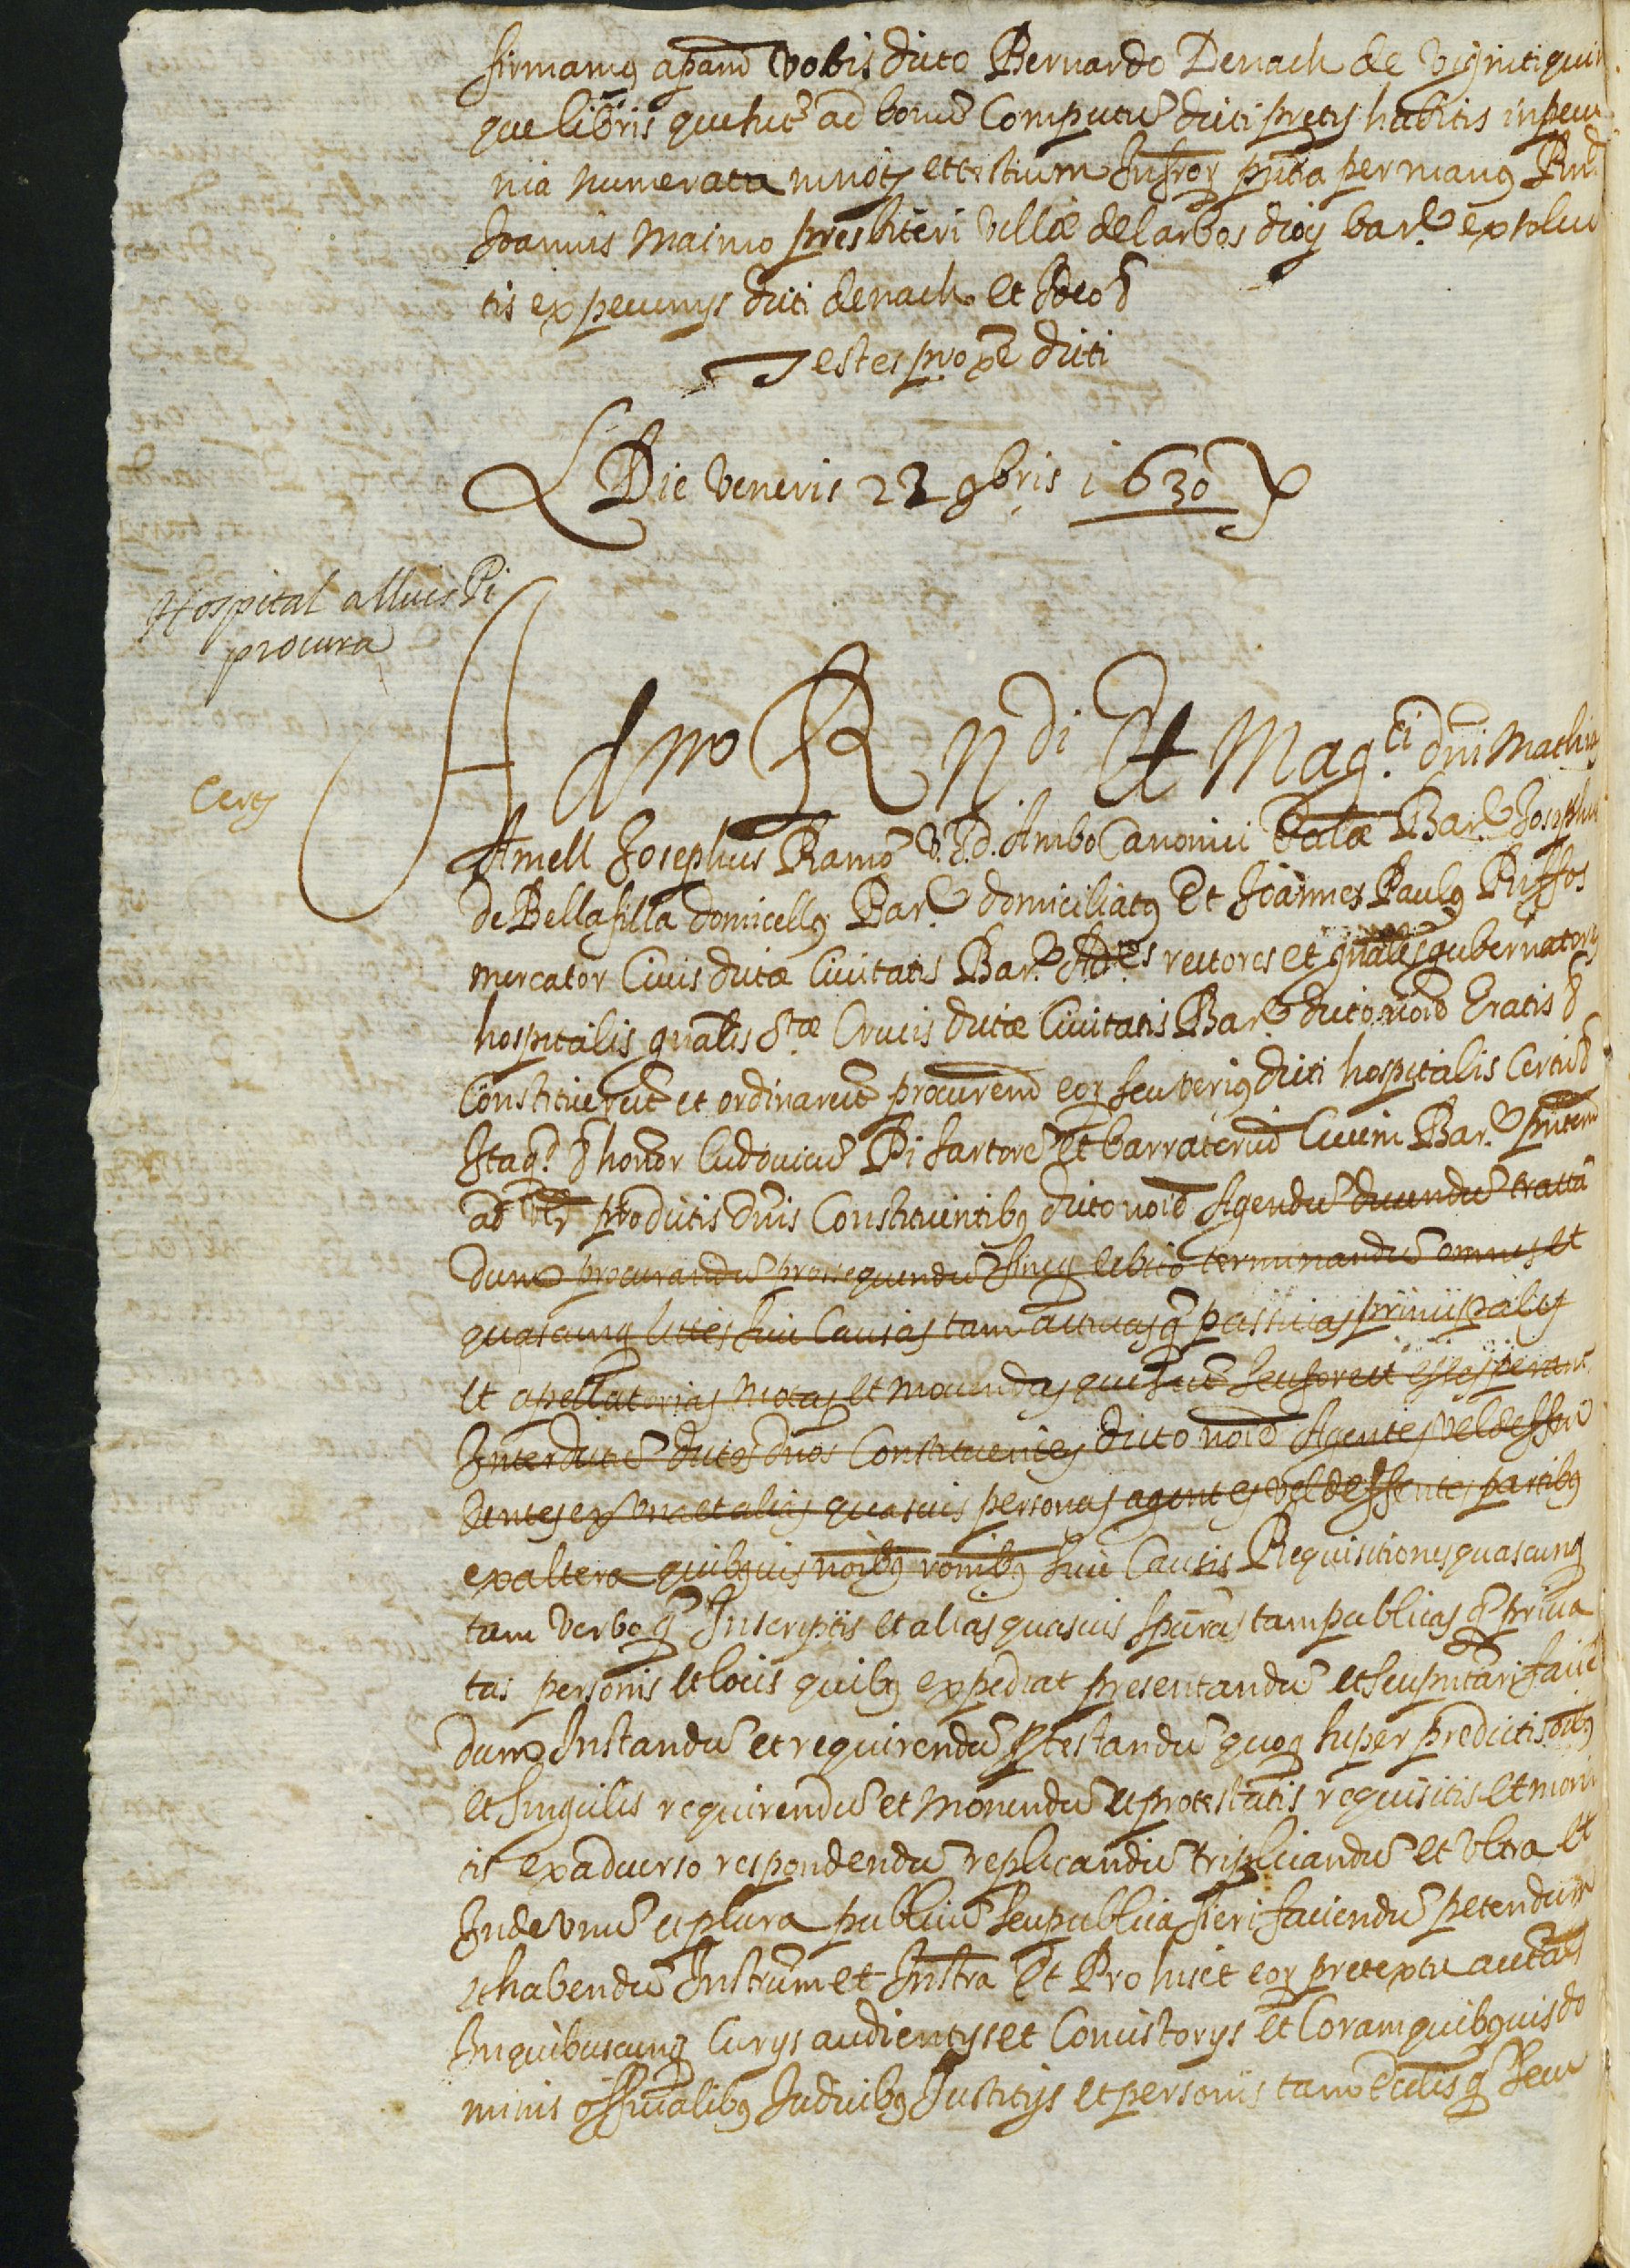 firmamus apamꝰ vobis dicto Bernardo Denach de vigintiquin
que libris que sut ad bonũ Computũ dicti pretij habitis in pecu
nia numerata in noty et testium Infror pñtia per manus Rnd
Joannis Maimo presbiteri villæ del arbos dioc bar.e exsolu
tis ex pecunijs dicti denach et Ideo &
Testes proxe dicti
Die Veneris 22 9bris 1630
Hospital a lluis Pi
procura
Certs
Admo Rndi Et Magci dñi Mathias
Amell Josephus Ramõ V.J.d. Ambo Canonici Eccłæ Bar.e Josephus
de Bellafilla domicellus Bar.e domiciliatus Et Joannes Paulus Riffos
mercator Civis dictæ Civitatis Bar.e Ad.es rectores et gñales gubernatores
hospitalis gñalis Stæ Crucis dictæ Civitatis Bar.e dicto noīe Gratis &
Constituerũt et ordinarũt procurem eor seu verius dicti hospitalis Certũ &
Itaq. & honor Ludovicũ Pi sartorẽ et barraterium Civem Bar.e pñtem
ad vlr pro dictis dñis Constituentibus dicto noīe Agendũ ducendũ tracta
dum procurandũ prossequendũ fineq. debito terminandũ omnes et
quascunq lites sive Causas tam activas q passivas principales
et apellatorias motas et movendas que sũt seu forent et esse sperant
Inter dictũ dictos dños Constituentes dicto noīe Agentes vel deffen
dentes ex una et alias quasvis personas agentes vel deffentes partibus
ex altera quibusvis noībus ronibus sive Causis Requisitiones quascunq
tam verbo q Inscriptis et alias quasvis spuras tam publicas q priva
tas personis et locis quibus expediat presentandũ et seu pñtari facie
dum Instandũ et requirendũ ptestandũ quoq super predictis oībus
et singulis requirendũ et monendũ et protestatis requisitis et moni
tis ex adverso respondendũ replicandũ tripliciandũ et ultra et
Inde unũ et plura publicũ seu publica fieri faciendũ petendum
et habendũ Instrum et Instra Et Pro his et eor pretextu
In quibuscunq Curijs audientijs et Consistorijs et Coram quibusvis do
minis officialibus Judicibus Justitijs et personis tam Eccłis q Secu